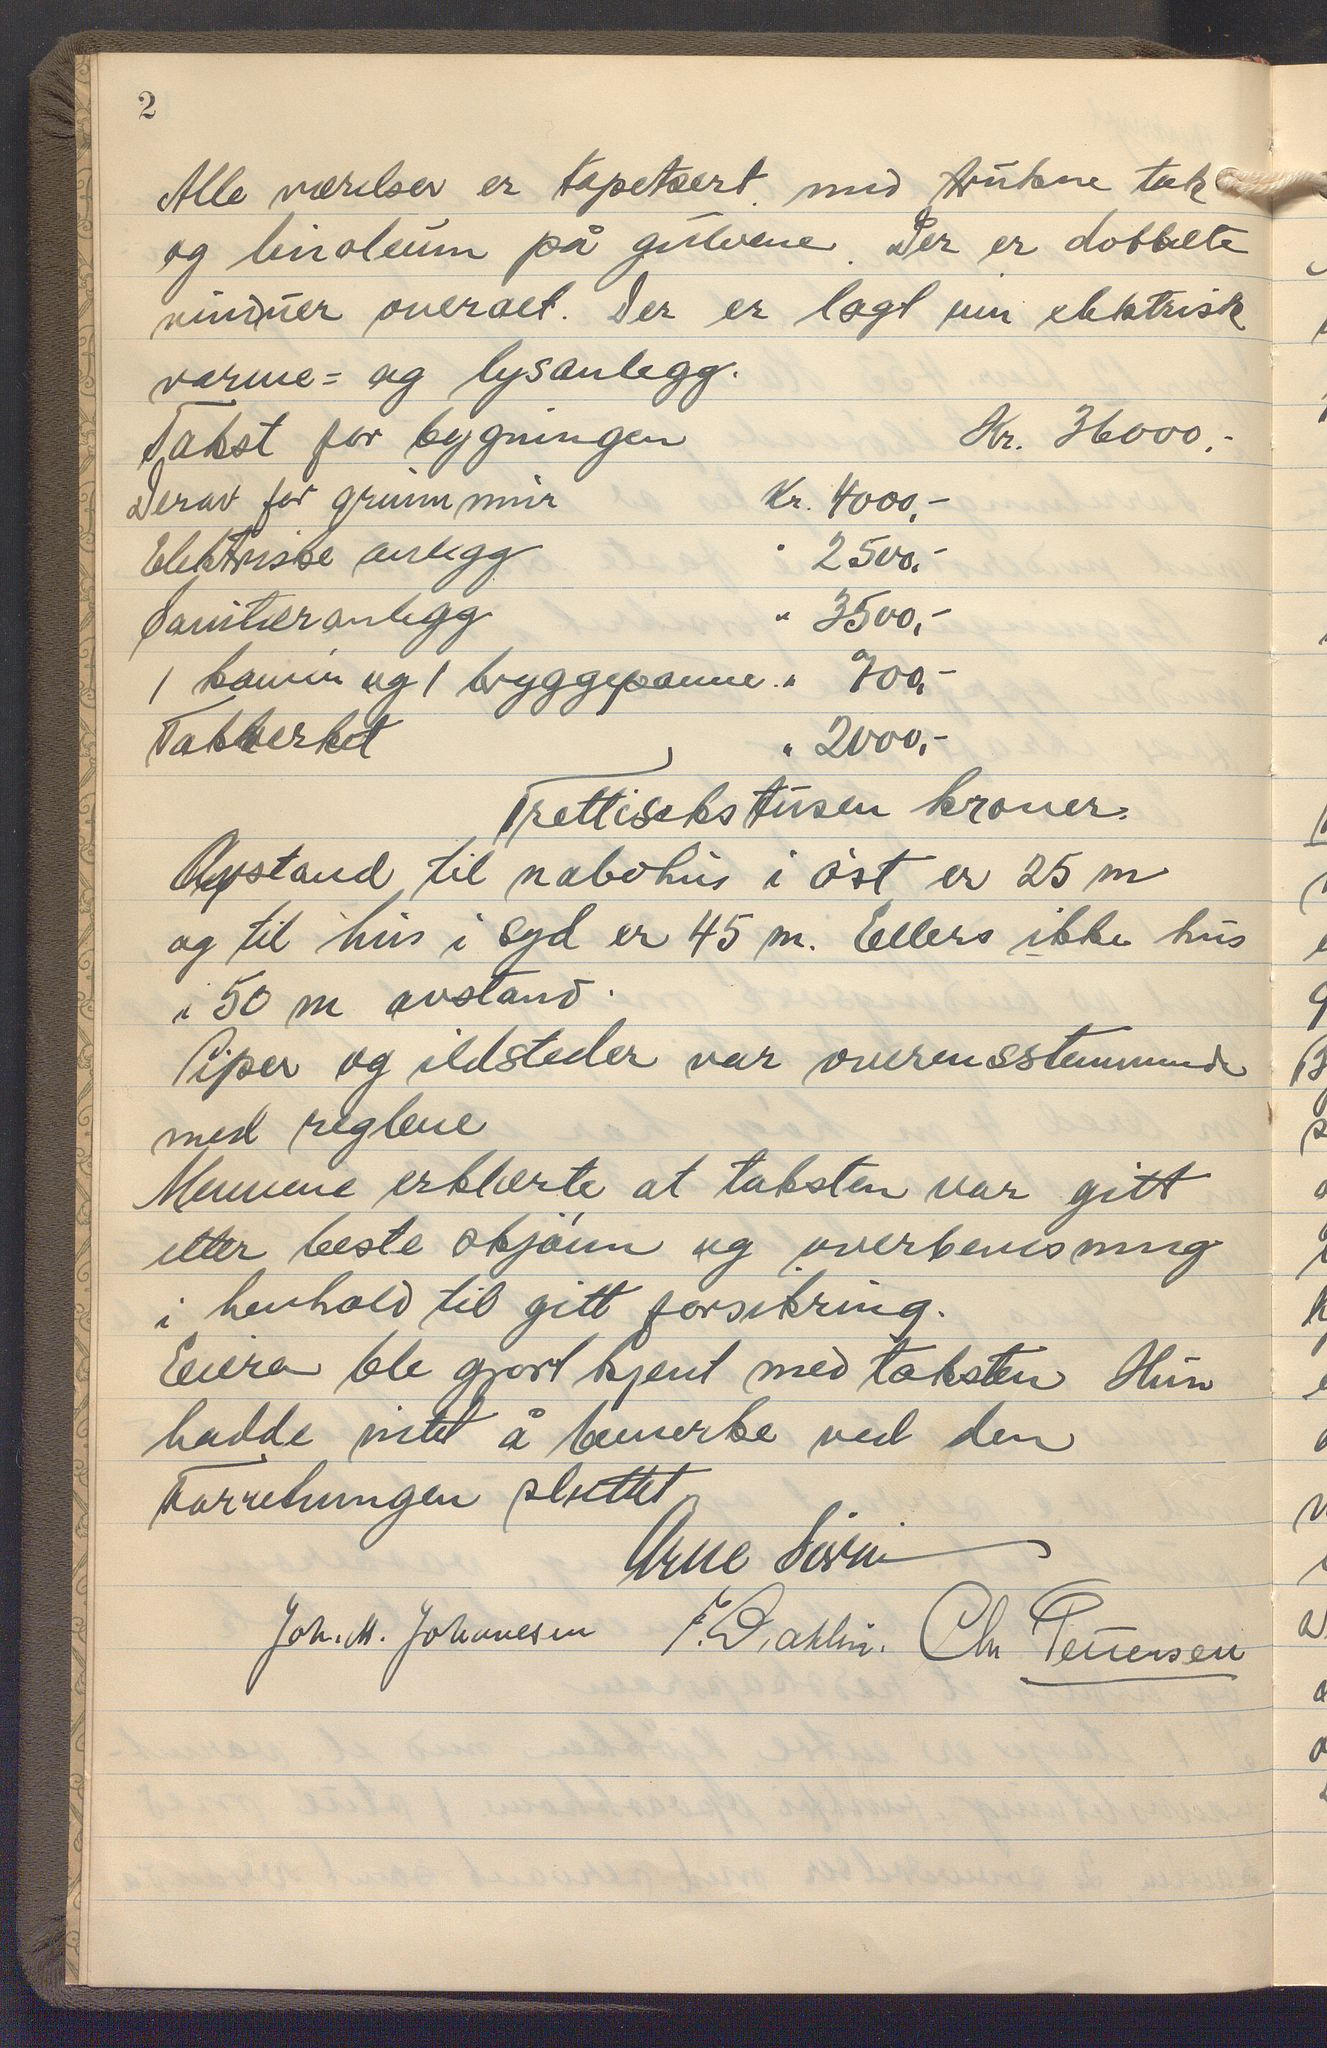 2
Alle værelser er tapetsert med trukne tak
og linoleum på gulvene. Der er dobbelte
vinduer overalt. Der er lagt inn elektrisk
varme= og lysanlegg.
Takst for bygningen Kr. 36000,-
Derav for grunnmur Kr. 4000,-
Elektriske anlegg " 2500,-
Sanitæranlegg " 3500,-
1 kamin og 1 bryggepanne " 700,-
Takverket " 2000,-
Trettisekstusen kroner.
Avstand til nabohus i öst er 25 m
og til hus i syd er 45 m. Ellers ikke hus
i 50 m avstand.
Piper og ildsteder var overensstemmende
med reglene
Mennene erklærte at taksten var gitt
etter beste skjönn og overbevisning
i henhold til gitt forsikring.
Eieren ble gjort kjent med taksten Hun
hadde intet å bemerke ved den
Forretningen sluttet
Arne
Joh. M. Johanesen F. Dahlin. Chr Pettersen